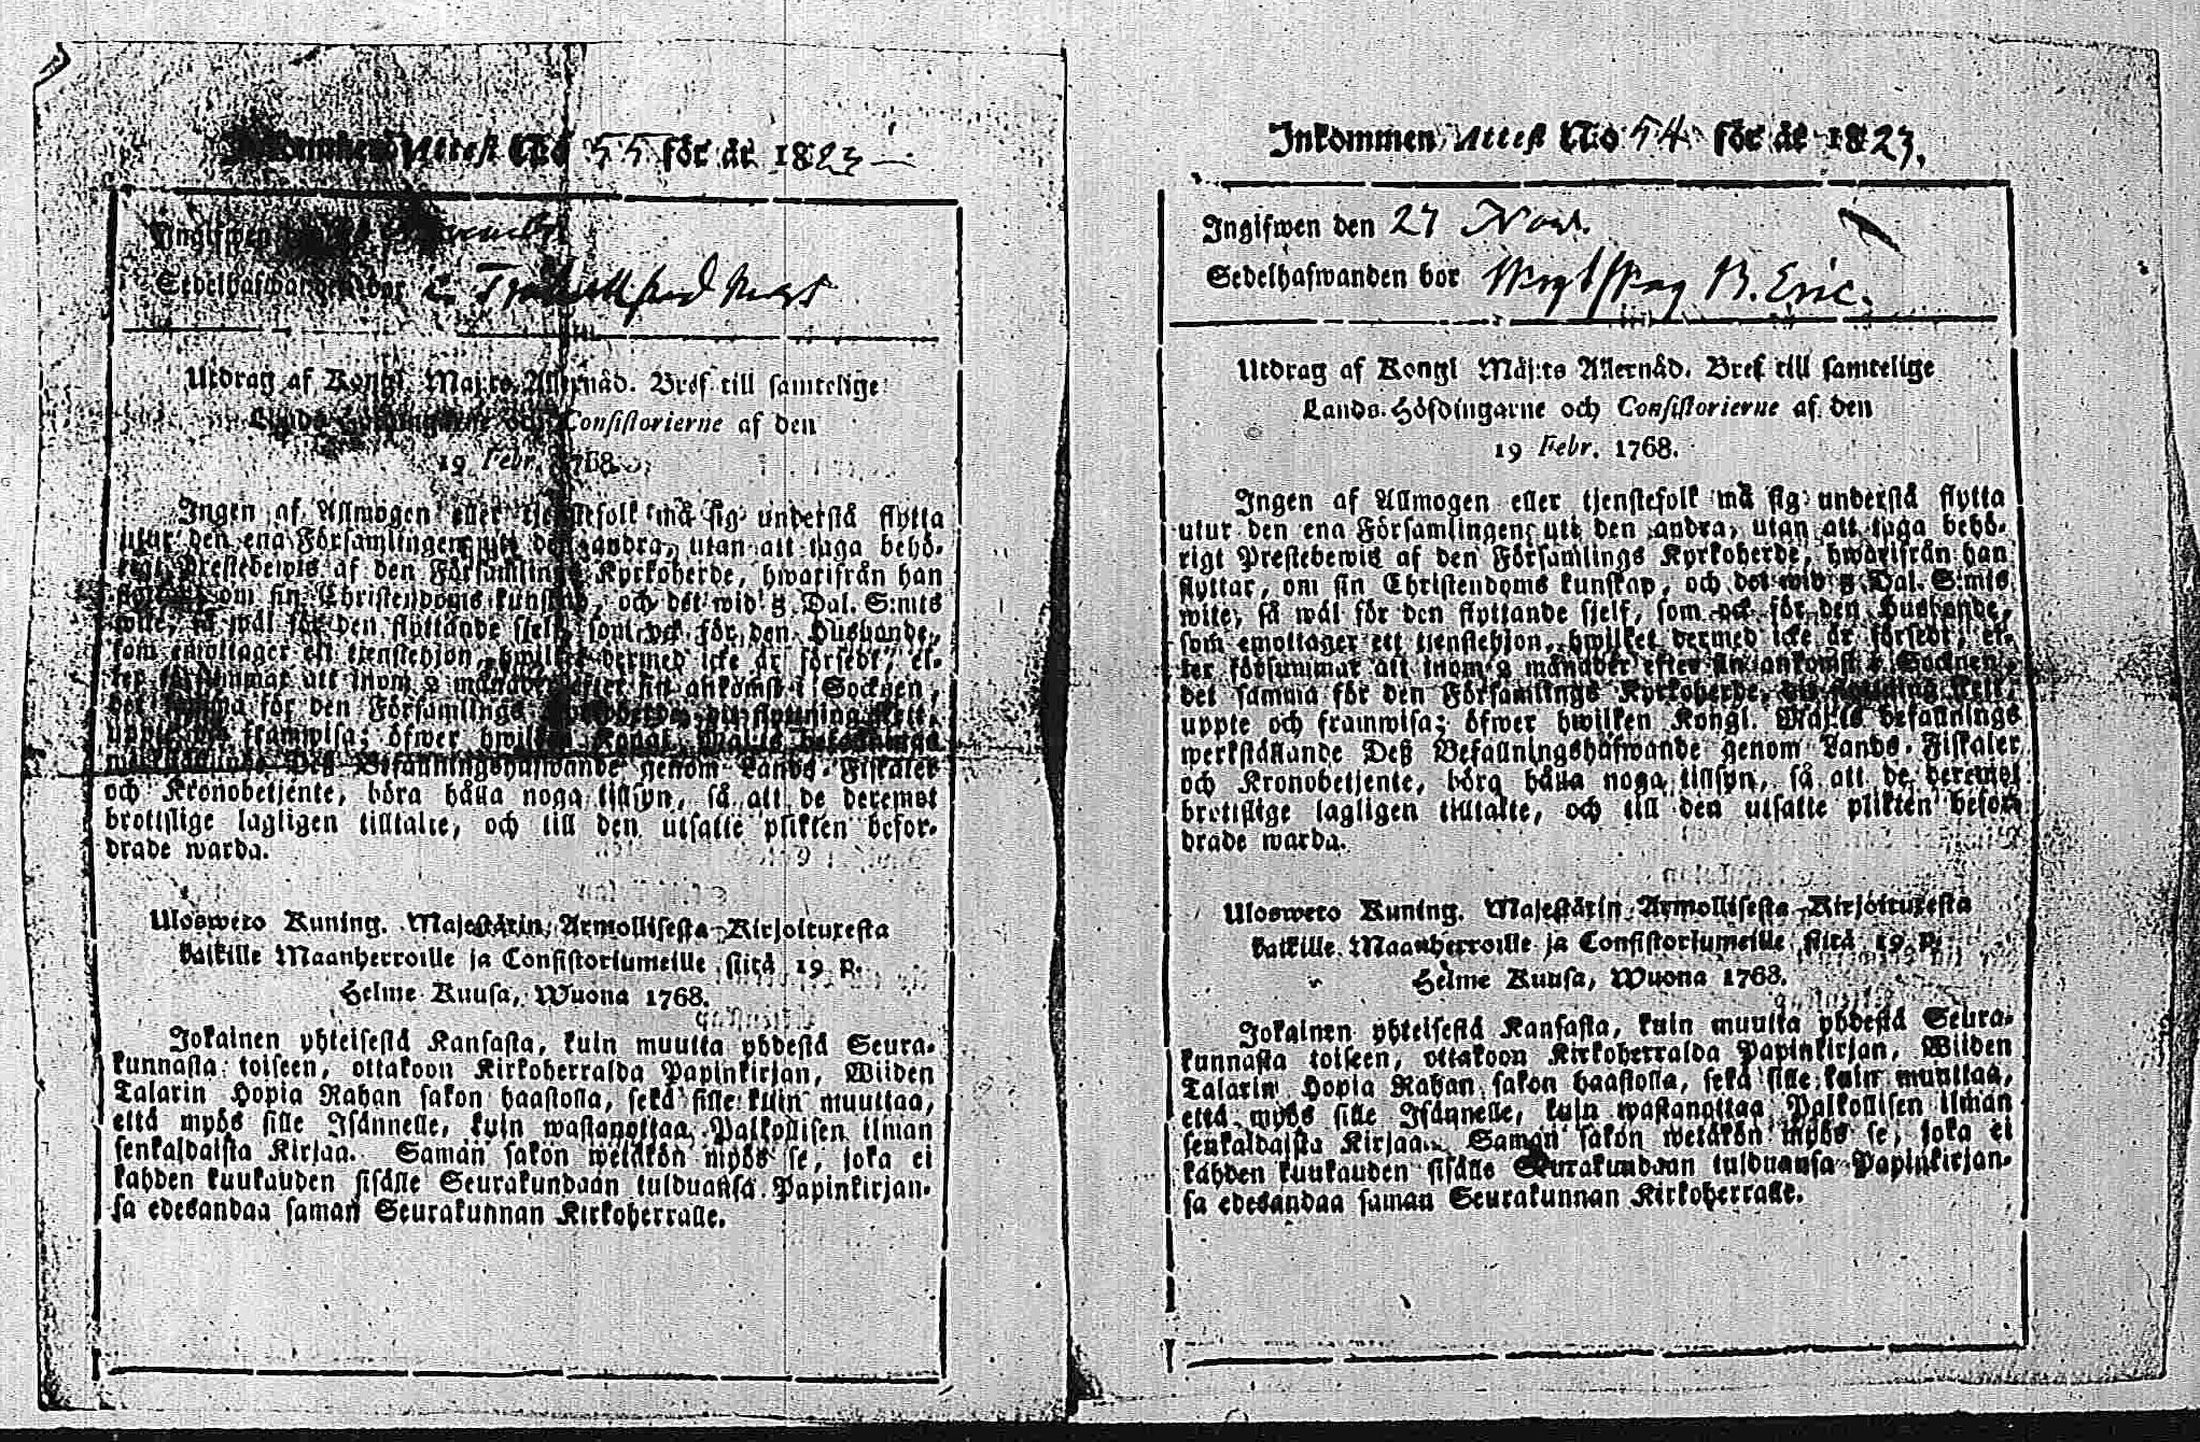 Attest No 55 för år 1823
Sedelhafwanden bor
Utdrag af Kongl. Maj:ts Allernåd. Bref till samtelige
Lands-Höfdingarne och Consistorierne af den
19 Febr. 1768.
Ingen af Allmogen eller tjenstefolk må sig understå flytta
utur den ena Församlingen uti den andra, utan att taga behö-
rigt Prestebewis af den Församlings Kyrkoherde, hwarifrån han
flyttar, om sin Christendoms kunskap, och det wid 5 Dal. S:mts
wite, så wäl för den flyttande sjelf, som ock för den Husbonde,
som emottager ett tjenstehjon, hwilket dermed icke är försedt, el-
ler försummar att inom 2 månader efter sin ankomst i Socknen,
det samma för den Församlings
uppte och framwisa; öfwer hwilken Kongl. Maj:ts befallnings
werkställande Deß Befallningshafwande genom Lands-Fiskaler
och Kronobetjente, böra hålla noga tillsyn, så att de deremot
brottslige lagligen tilltalte, och till den utsatte plikten befor-
drade warda.
Uloswero Kuning. Majestärin Armollisesta Kirjoituxesta
kaikille Maanherroille ja Consistoriumeille siitä 19 p.
Helme Kuusa, Wuona 1768.
Jokainen yhteisestä Kansasta, kuin muutta yhdestä Seura-
kunnasta toiseen, ottakoon Kirkoherralda Papinkirjan, Wiiden
Talarin Hopia Rahan sakon haastolla, sekä sille kuin muuttaa,
että myös sille Isännelle, kuin wastanottaa Palkollisen ilman
senkaldaista Kirjaa. Saman sakon wetäkön myös se, joka ei
kahden kuukauden sisälle Seurakundaan tulduansa Papinkirjan-
sa edesandaa saman Seurakunnan Kirkoherralle.
Inkommen Attest No 54 för år 1823.
Ingifwen den 27 Nov.
Sedelhafwanden bor B. Eric.
Utdrag af Kongl Maj:ts Allernåd. Bref till samtelige
Lands-Höfdingarne och Consistorierne af den
19 Febr. 1768.
Ingen af Allmogen eller tjenstefolk må sig understå flytta
utur den ena Församlingen uti den andra, utan att taga behö-
rigt Prestebewis af den Församlings Kyrkoherde, hwarifrån han
flyttar, om sin Christendoms kunskap, och det wid 5 Dal. S:mts
wite, så wäl för den flyttande sjelf, som ock för den Husbonde,
som emottager ett tjenstehjon, hwilket dermed icke är försedt, el-
ler försummar att inom 2 månader efter sin ankomst i Socknen,
det samma för den Församlings Kyrkoherde,
uppte och framwisa; öfwer hwilken Kongl. Maj:ts befallnings
werkställande Deß Befallningshafwande genom Lands-Fiskaler
och Kronobetjente, böra hålla noga tillsyn, så att de deremot
brottslige lagligen tilltalte, och till den utsatte plikten befor-
drade warda.
Uloswero Kuning. Majestärin Armollisesta Kirjoituxesta
kaikille Maanherroille ja Consistoriumeille siitä 19 p.
Helme Kuusa, Wuona 1768.
Jokainen yhteisestä Kansasta, kuin muutta yhdestä Seura-
kunnasta toiseen, ottakoon Kirkoherralda Papinkirjan, Wiiden
Talarin Hopia Rahan sakon haastolla, sekä sille kuin muuttaa,
että myös sille Isännelle, kuin wastanottaa Palkollisen ilman
senkaldaista Kirjaa. Saman sakon wetäkön myös se, joka ei
kahden kuukauden sisälle Seurakundaan tulduansa Papinkirjan-
sa edesandaa saman Seurakunnan Kirkoherralle.